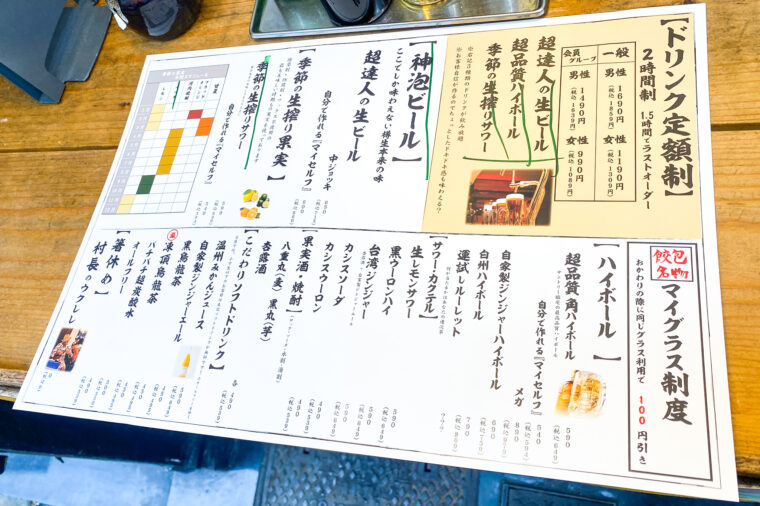 【ドリンク定額制】
2時間制 1.5時間でラストオーダー
一般
男性
1690円
(税込1859円)
女性
1190円
(税込1309円)
会員グループ
男性
1490円
(税込1639円)
女性
990円
(税込1089円)
超達人の生ビール
超品質ハイボール
季節の生搾りサワー
【神泡ビール】
ここでしか味わえない樽生本来の味
超達人の生ビール
中ジョッキ
650
自分で作れる『マイセルフ』
590
【季節の生搾り果実】
季節の生搾りサワー
自分で作れる『マイセルフ』
餃包名物
マイグラス制度
おかわりの際に同じグラス利用で100円引き
【ハイボール】
超品質角ハイボール
590
(税込649)
自分で作れる『マイセルフ』
540
(税込594)
メガ
890
自家製ジンジャーハイボール
690
白州ハイボール
790
(税込869)
運試しルーレット
???
【サワー・カクテル】
生レモンサワー
590
(税込649)
黒ウーロンハイ
590
(税込649)
台湾ジンジャー
590
(税込649)
カシスソーダ
490
(税込539)
カシスウーロン
490
(税込539)
【果実酒・焼酎】
八重丸(麦) 黒丸(芋)
杏露酒
【こだわりソフトドリンク】
温州みかんジュース
自家製ジンジャーエール
黒烏龍茶
温
凍頂烏龍茶
バチバチ超炭酸水
オールフリー
【箸休め】
村長のウクレレ